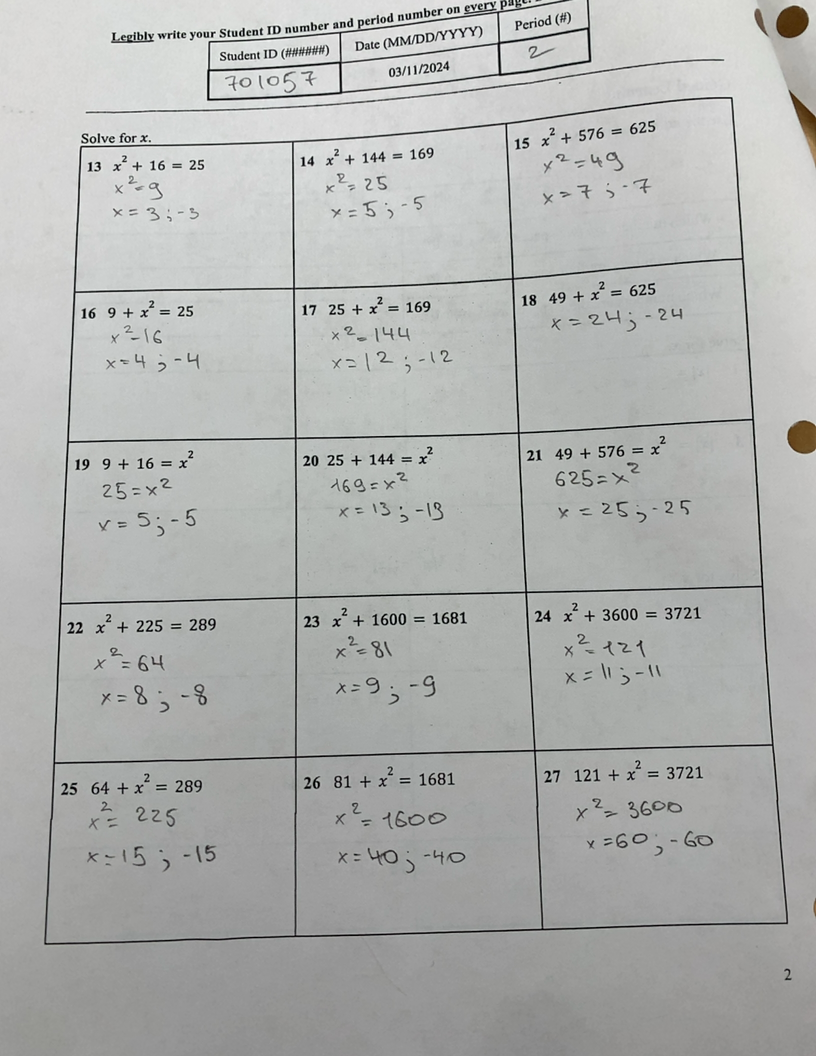 Legibly write your Student ID number and period number on every page.
Student ID (######) Date (MM/DD/YYYY) Period (#)
701057 03/11/2024 2
Solve for x.
13 x² + 16 = 25
x²=9
x = 3 ; -3
14 x² + 144 = 169
x²=25
x = 5 ; -5
15 x² + 576 = 625
x²=49
x=7 ; -7
16 9 + x² = 25
x²=16
x=4 ; -4
17 25 + x² = 169
x²=144
x=12 ; -12
18 49 + x² = 625
x = 24 ; -24
19 9 + 16 = x²
25=x²
x = 5 ; -5
20 25 + 144 = x²
169=x²
x=13 ; -13
21 49 + 576 = x²
625=x²
x = 25 ; -25
22 x² + 225 = 289
x²=64
x=8 ; -8
23 x² + 1600 = 1681
x²=81
x=9 ; -9
24 x² + 3600 = 3721
x²=121
x=11 ; -11
25 64 + x² = 289
x²= 225
x=15 ; -15
26 81 + x² = 1681
x²=1600
x=40 ; -40
27 121 + x² = 3721
x²=3600
x=60 ; -60
2